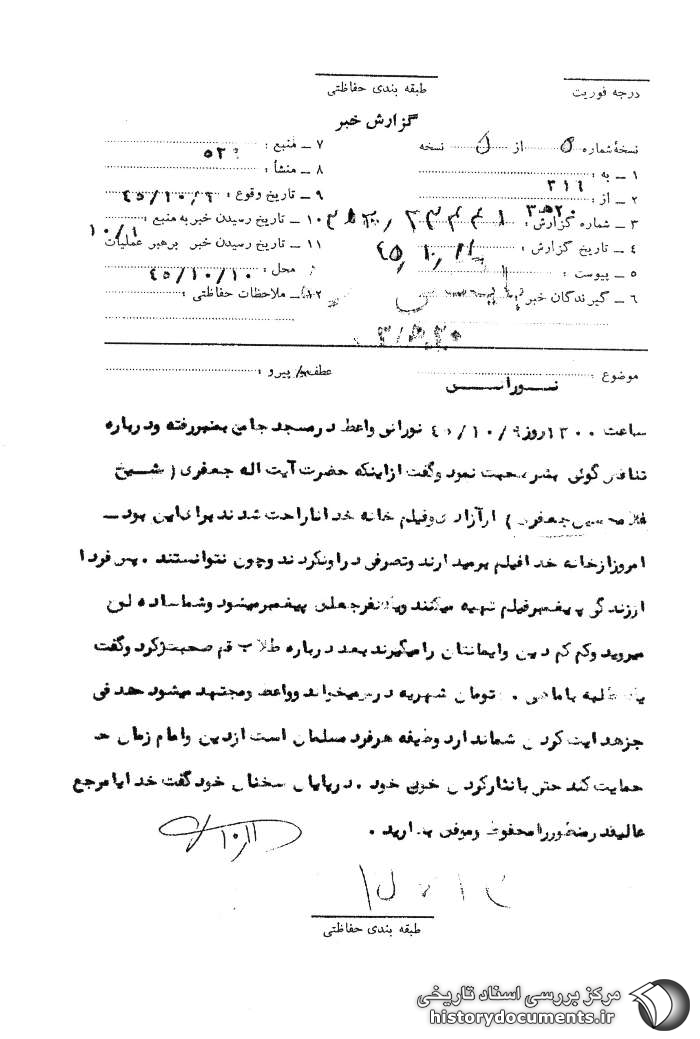 درجه فوریت
طبقه بندی حفاظتی
گزارش خبر
نسخهٔ شماره ۵ از نسخه
۱ ـ به : ۳۱۶
۲ ـ از : ۲۰ ه ۳
۳ ـ شماره گزارش :
۴ ـ تاریخ گزارش :
۵ ـ پیوست :
۶ ـ گیرندگان خبر
۷ ـ منبع : ۵۲۰
۸ ـ منشأ :
۹ ـ تاریخ وقوع : ۴۵/۱۰/۹
۱۰ ـ تاریخ رسیدن خبر به منبع :
۱۱ ـ تاریخ رسیدن خبر برهبر عملیات
محل : ۴۵/۱۰/۱۰
۱۲ ـ ملاحظات حفاظتی :
موضوع :
عطف پیرو :
نورانی
ساعت ۱۳۰۰ روز ۴۵/۱۰/۹ نورانی واعظ در مسجد جامع بمنبر رفته و درباره
تناقض گوئی بشر صحبت نمود و گفت از اینکه حضرت آیت اله جعفری ( شیخ
جعفری ) از آزادی و فیلم خانه خدا ناراحت شدند برای این بود ـ
امروز از خانه خدا فیلم برمیدارند و تصرفی در او نکردند و چون نتوانستند . پس فردا
از زندگی پیغمبر فیلم تهیه میکنند و یکنفر جعلی پیغمبر میشود و شما ساده لوح
میروید و کم کم دین و ایمانتان را میگیرند بعد درباره طلاب قم صحبت کرد و گفت
یک طلبه با ماهی تومان شهریه درس میخواند و واعظ و مجتهد میشود هدفی
جز هدایت کردن شما ندارد وظیفه هر فرد مسلمان است از دین و امام زمان خود
حمایت کند حتی با نثار کردن خون خود . در پایان سخنان خود گفت خدایا مرجع
عالیقدر منظور را محفوظ و موفق بدارید .
۱۰/۱۱
طبقه بندی حفاظتی
مرکز بررسی اسناد تاریخی
historydocuments.ir